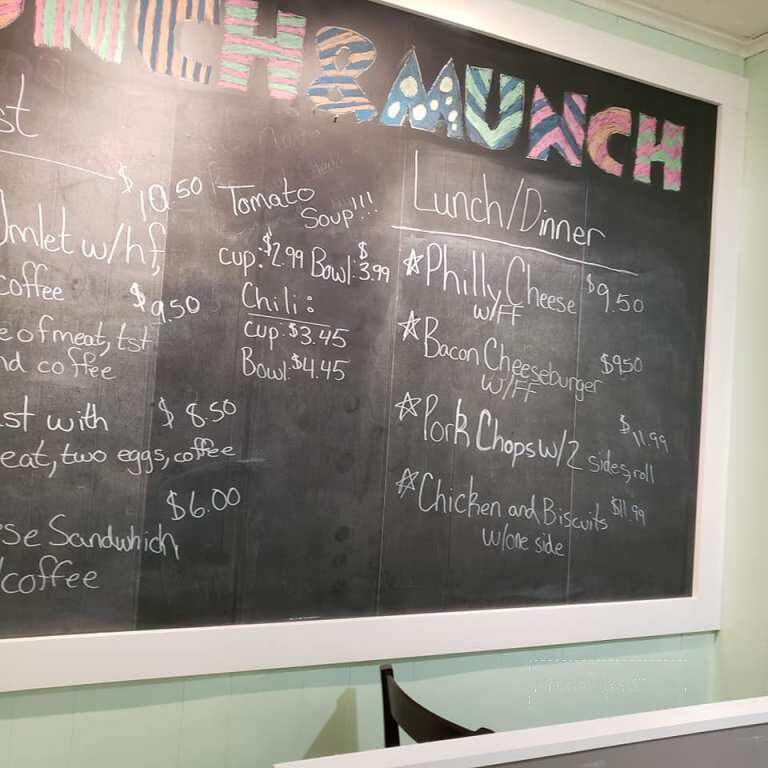 NCH & MUNCH
st
$10.50
Omlet w/hf,
coffee
$9.50
e of meat, tst
nd coffee
st with $8.50
eat, two eggs, coffee
$6.00
se Sandwhich
/coffee
Tomato
Soup!!!
cup: $2.99 Bowl: $3.99
Chili:
cup: $3.45
Bowl: $4.45
Lunch/Dinner
☆ Philly Cheese $9.50
w/FF
☆ Bacon Cheeseburger $9.50
w/FF
☆ Pork Chops w/2 sides, roll $11.99
☆ Chicken and Biscuits $11.99
w/one side